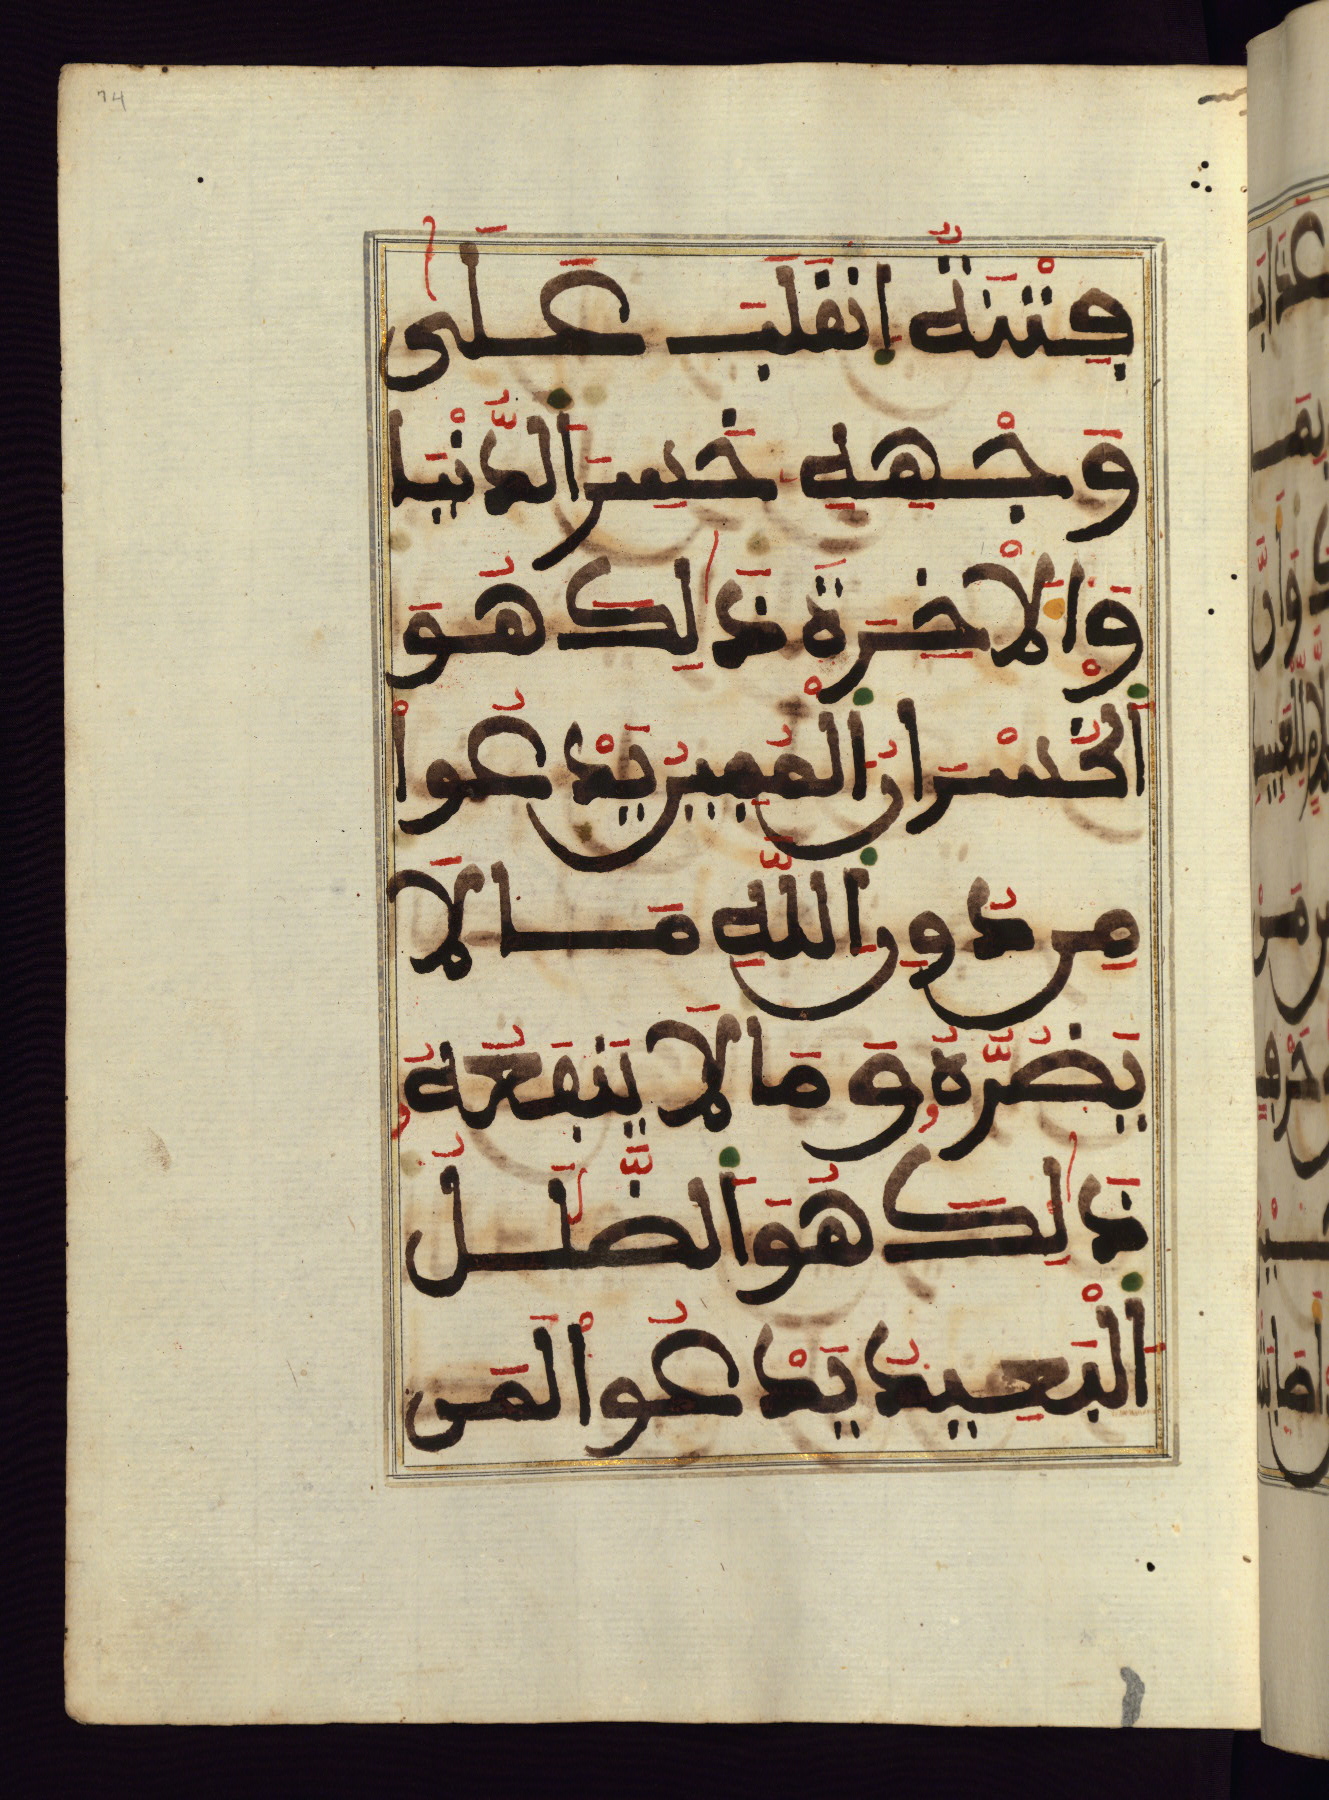 74
فِتْنَةٌ اِنقَلَبَ عَلَىٰ
وَجْهِهِ خَسِرَ اَلدُّنْيَا
وَالْاخِرَةَ ذَٰلِكَ هُوَ
اَلْخُسْرَانُ اَلْمُبِينُ يَدْعُواْ
مِن دُونِ اِللَّهِ مَا لَا
يَضُرُّهُ وَمَا لَا يَنفَعُهُ
ذَٰلِكَ هُوَ اَلضَّلَٰلُ
اَلْبَعِيدُ يَدْعُواْ لَمَن